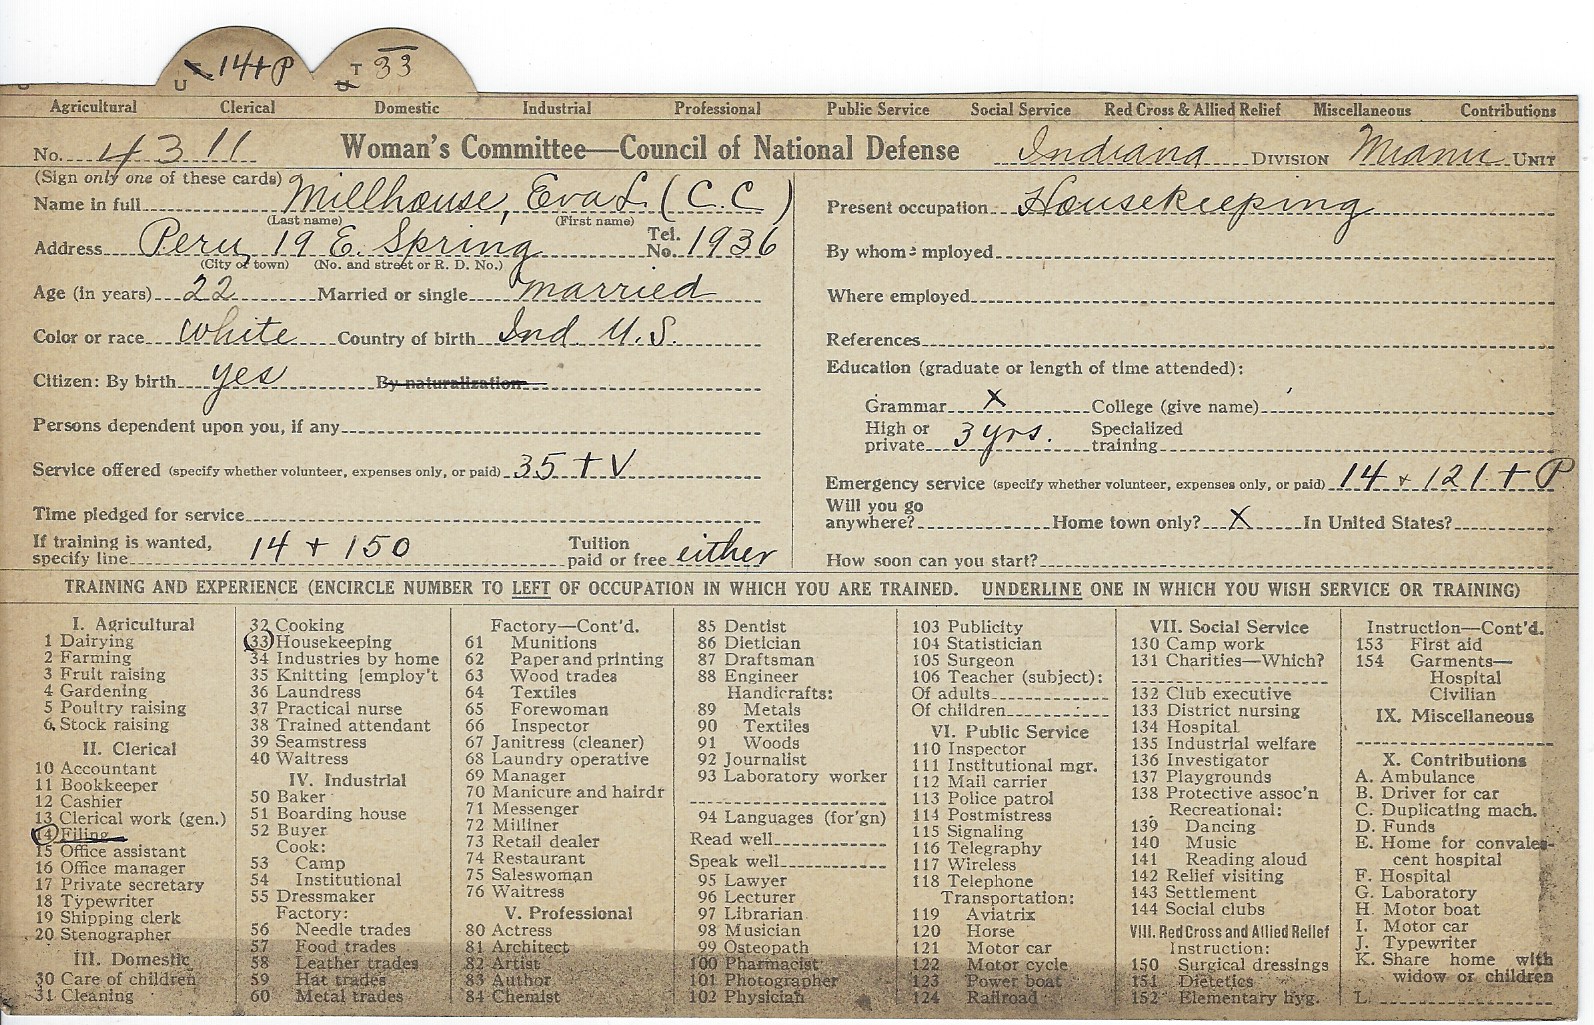 U 14+P T 33
Agricultural Clerical Domestic Industrial Professional Public Service Social Service Red Cross & Allied Relief Miscellaneous Contributions
No. 4311 Woman's Committee—Council of National Defense Indiana DIVISION Miami UNIT
(Sign only one of these cards)
Name in full Millhouse, Eva L. (C.C)
(Last name) (First name)
Address Peru, 19 E. Spring Tel. No. 1936
(City or town) (No. and street or R. D. No.)
Age (in years) 22 Married or single married
Color or race white Country of birth Ind. U.S.
Citizen: By birth yes By naturalization
Persons dependent upon you, if any
Service offered (specify whether volunteer, expenses only, or paid) 35 + V
Time pledged for service
If training is wanted, specify line 14 + 150 Tuition paid or free either
Present occupation Housekeeping
By whom employed
Where employed
References
Education (graduate or length of time attended):
Grammar X College (give name)
High or private 3 yrs. Specialized training
Emergency service (specify whether volunteer, expenses only, or paid) 14 + 121 + P
Will you go anywhere? Home town only? X In United States?
How soon can you start?
TRAINING AND EXPERIENCE (ENCIRCLE NUMBER TO LEFT OF OCCUPATION IN WHICH YOU ARE TRAINED. UNDERLINE ONE IN WHICH YOU WISH SERVICE OR TRAINING)
I. Agricultural
1 Dairying
2 Farming
3 Fruit raising
4 Gardening
5 Poultry raising
6 Stock raising
II. Clerical
10 Accountant
11 Bookkeeper
12 Cashier
13 Clerical work (gen.)
14 Filing
15 Office assistant
16 Office manager
17 Private secretary
18 Typewriter
19 Shipping clerk
20 Stenographer
III. Domestic
30 Care of children
31 Cleaning
32 Cooking
33 Housekeeping
34 Industries by home
35 Knitting [employ't
36 Laundress
37 Practical nurse
38 Trained attendant
39 Seamstress
40 Waitress
IV. Industrial
50 Baker
51 Boarding house
52 Buyer
Cook:
53 Camp
54 Institutional
55 Dressmaker
Factory:
56 Needle trades
57 Food trades
58 Leather trades
59 Hat trades
60 Metal trades
Factory—Cont'd.
61 Munitions
62 Paper and printing
63 Wood trades
64 Textiles
65 Forewoman
66 Inspector
67 Janitress (cleaner)
68 Laundry operative
69 Manager
70 Manicure and hairdr
71 Messenger
72 Milliner
73 Retail dealer
74 Restaurant
75 Saleswoman
76 Waitress
V. Professional
80 Actress
81 Architect
82 Artist
83 Author
84 Chemist
85 Dentist
86 Dietician
87 Draftsman
88 Engineer
Handicrafts:
89 Metals
90 Textiles
91 Woods
92 Journalist
93 Laboratory worker
94 Languages (for'gn)
Read well
Speak well
95 Lawyer
96 Lecturer
97 Librarian
98 Musician
99 Osteopath
100 Pharmacist
101 Photographer
102 Physician
103 Publicity
104 Statistician
105 Surgeon
106 Teacher (subject):
Of adults
Of children
VI. Public Service
110 Inspector
111 Institutional mgr.
112 Mail carrier
113 Police patrol
114 Postmistress
115 Signaling
116 Telegraphy
117 Wireless
118 Telephone
Transportation:
119 Aviatrix
120 Horse
121 Motor car
122 Motor cycle
123 Power boat
124 Railroad
VII. Social Service
130 Camp work
131 Charities—Which?
132 Club executive
133 District nursing
134 Hospital
135 Industrial welfare
136 Investigator
137 Playgrounds
138 Protective assoc'n
Recreational:
139 Dancing
140 Music
141 Reading aloud
142 Relief visiting
143 Settlement
144 Social clubs
VIII. Red Cross and Allied Relief
Instruction:
150 Surgical dressings
151 Dietetics
152 Elementary hyg.
Instruction—Cont'd.
153 First aid
154 Garments—
Hospital
Civilian
IX. Miscellaneous
X. Contributions
A. Ambulance
B. Driver for car
C. Duplicating mach.
D. Funds
E. Home for convales-
cent hospital
F. Hospital
G. Laboratory
H. Motor boat
I. Motor car
J. Typewriter
K. Share home with
widow or children
L.